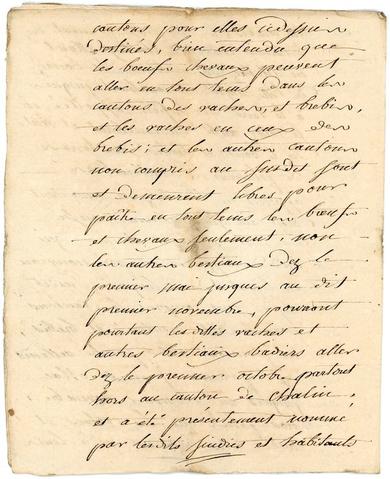 cantons pour elles cydessus
destinés, bien entendu que
les bœufs chevaux peuvent
aller en tout tems dans les
cantons des vaches, et brebis,
et les vaches en ceux des
brebis; et les autres cantons
non compris au susdes sont
et demeurent libres pour
paître en tout tems les bœufs
et chevaux seulement, non
les autres bestiaux dez le
premier mai jusques au dit
premier novembre, pouvant
pourtant les dittes vaches et
autres bestiaux aller
dez le premier octobre partout
hors au canton de chalin,
et a été présentement nommé
par lesdits sindics et habitants